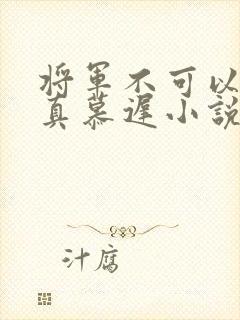 将軍不可以
真慕遲小説
汁腐